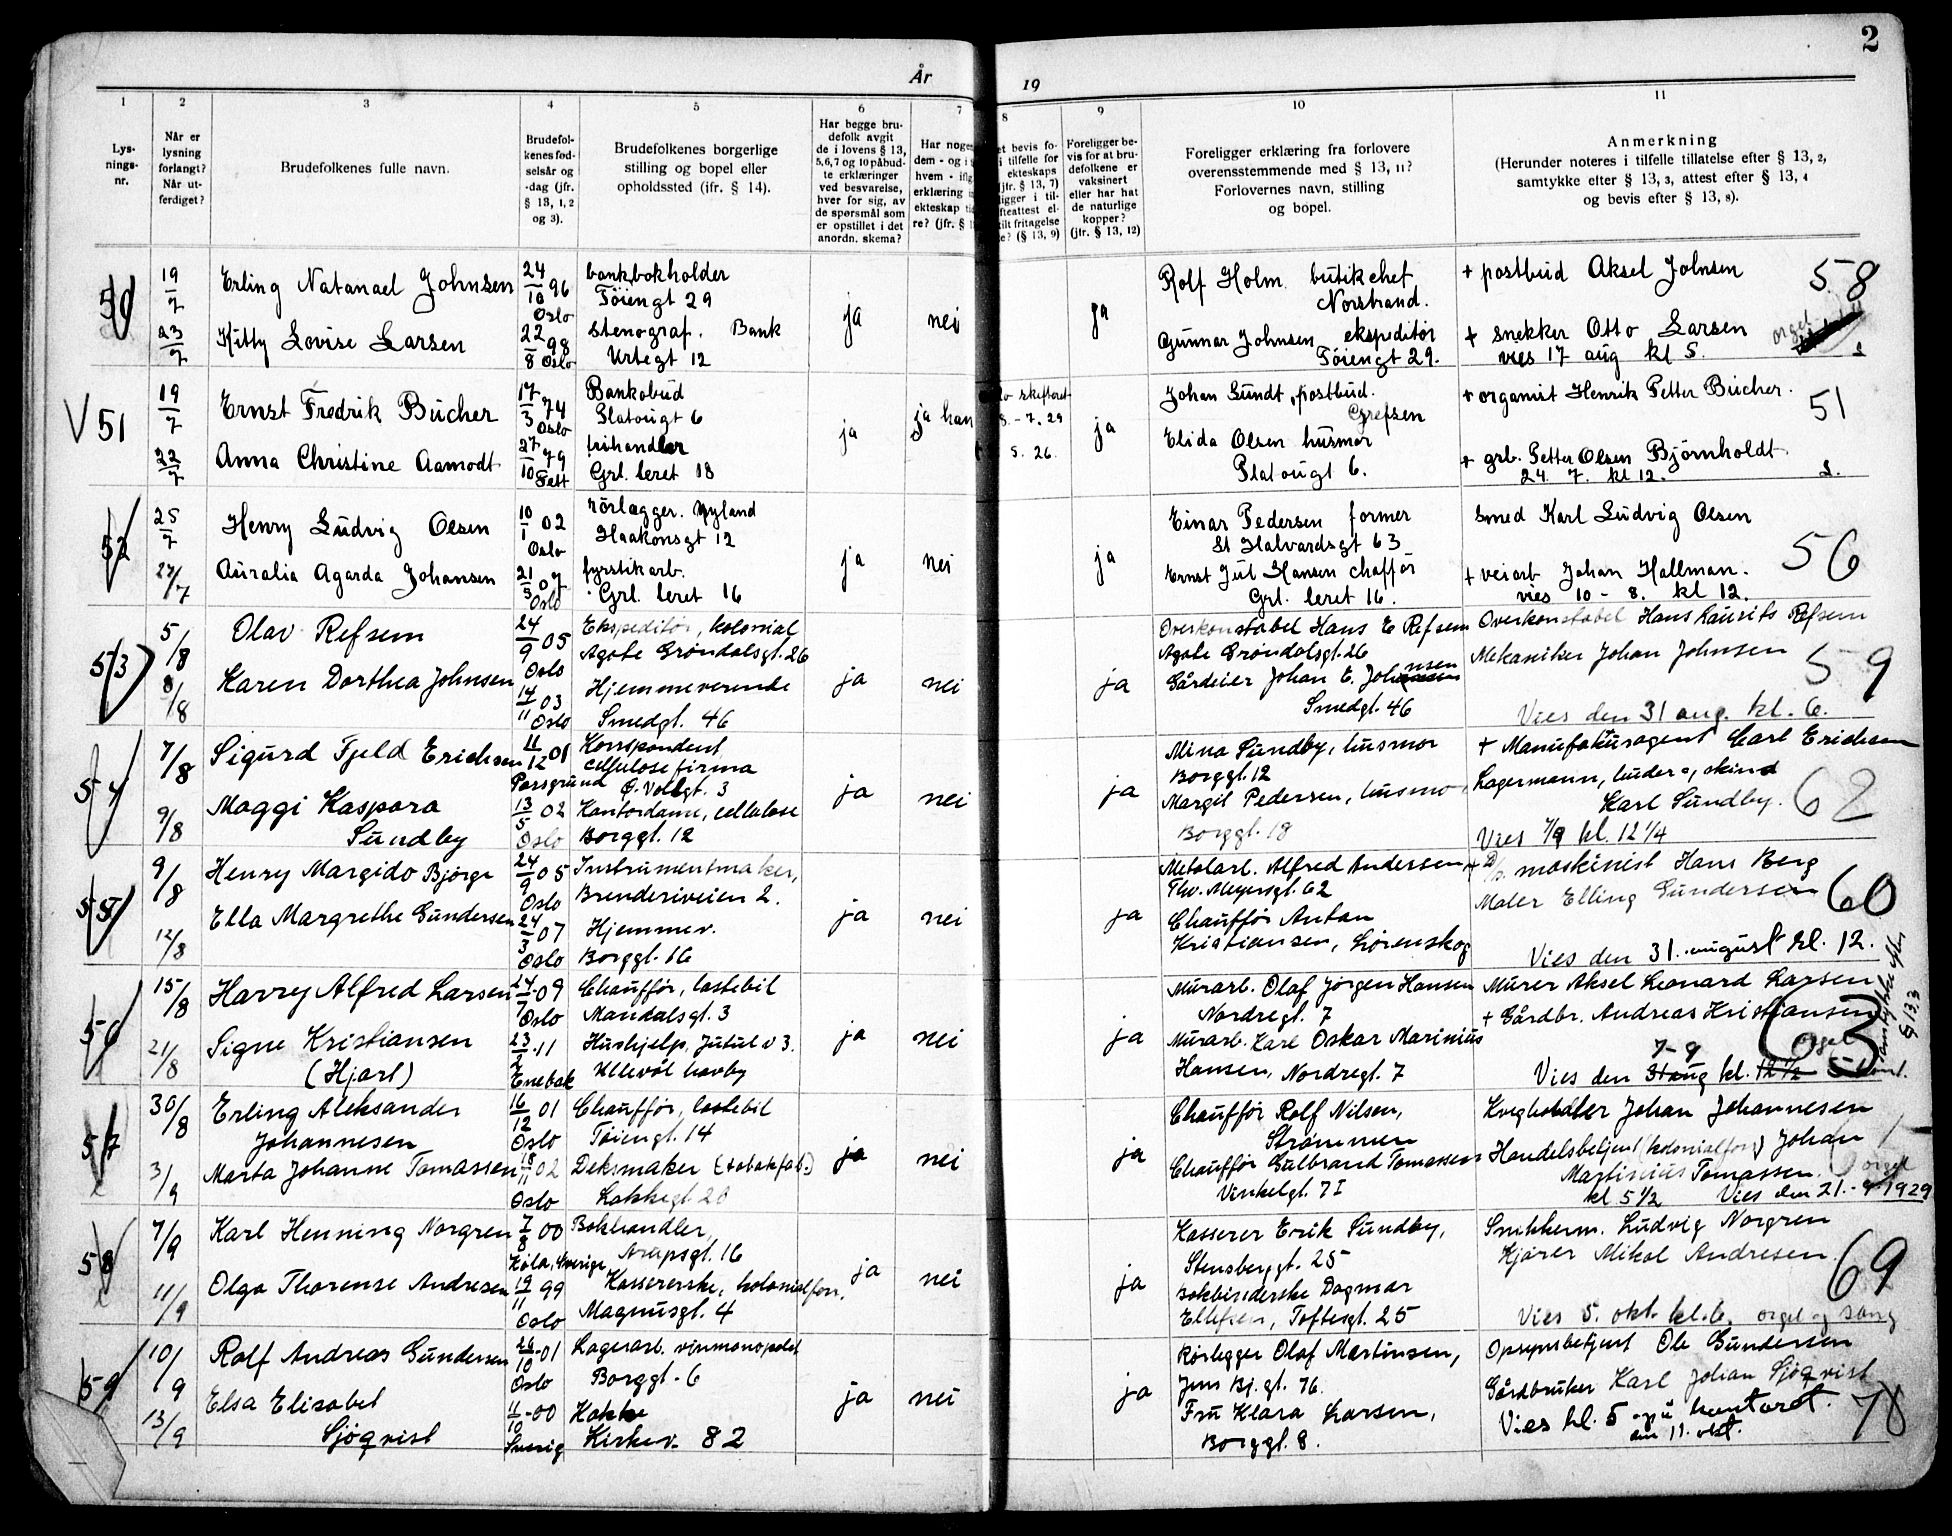 2
År
19
1
2
3
4
5
6
7
8
9
10
11
Lys-
nings-
nr.
Når er
lysning
forlangt?
Når ut-
ferdiget?
Brudefolkenes fulle navn.
Brudefol-
kenes fød-
selsår og
-dag (jfr.
§ 13, 1, 2
og 3).
Brudefolkenes borgerlige
stilling og bopel eller
opholdssted (ifr. § 14).
Har begge bru-
defolk avgit
de i lovens § 13,
5,6,7 og 10 påbud-
te erklæringer
ved besvarelse,
hver for sig, av
de spørsmål som
er opstillet i det
anordn. skema?
Har noge
dem - og i
hvem - ifl
erklæring
ekteskap ti
re? (jfr. §
et bevis fo-
i tilfelle for
ekteskaps
(jfr. § 13, 7)
ligger i til-
fteattest el-
tilt fritagelse
e? (§ 13, 9)
Foreligger be-
vis for at bru-
defolkene er
vaksinert
eller har hat
de naturlige
kopper?
(jfr. § 13, 12)
Foreligger erklæring fra forlovere
overensstemmende med § 13, 11?
Forlovernes navn, stilling
og bopel.
Anmerkning
(Herunder noteres i tilfelle tillatelse efter § 13, 2,
samtykke efter § 13, 3, attest efter § 13, 4
og bevis efter § 13, 8).
50
19/7
23/7
Erling Natanael Johnsen
Kitty Lovise Larsen
24/10 96
Oslo
22/8 98
Oslo
bankbokholder
Töiengt 29
stenograf. Bank
Urtegt 12
ja
nei
ja
Rolf Holm butikchef
Norstrand.
Gunnar Johnsen ekspeditör
Töiengt 29.
+ postbud Aksel Johnsen
+ snekker Otto Larsen
vies 17 aug kl 5.
58
orgel
V 51
19/7
22/7
Ernst Fredrik Bucher
Anna Christine Aamodt
17/3 74
Oslo
27/10 79
Fett
Bankobud
Platougt 6
Grl. leret 18
ja
ja han
skifteret
7. 29
S. 26.
ja
Johan Lundt, postbud.
Grefsen
Elida Olsen husmor
Platougt 6.
+ organist Henrik Petter Bucher.
+ grb. Petter Olsen Björnholdt
24. 7. kl 12.
51
52
25/7
27/7
Henry Ludvig Olsen
Auralia Agarda Johansen
10/1 02
Oslo
21/3 07
Oslo
rörlægger. Nyland
Haakonsgt 12
fyrstikarb.
Grl. leret 16
ja
nei
ja
Einar Pedersen former
St Halvardsgt 63
Ernst Jul Hansen chafför
Grl. leret 16.
Smed Karl Ludvig Olsen
+ veiarb Johan Hallman.
vies 10 - 8. kl 12.
56
53
5/8
8/8
Olav Refsem
Karen Dorthea Johnsen
24/9 05
Oslo
14/11 03
Oslo
Ekspeditör, kolonial
Agate Gröndalsgt. 26
Hjemmeverende
Smedgt. 46
ja
nei
ja
Overkonstabel Hans E Refsem
Agate Gröndalsgt. 26
Gårdeier Johan E. Johnsen
Smedgt. 46
Overkonstabel Hans Laurits Refsem
Mekaniker Johan Johnsen
Vies den 31 aug. kl. 6.
59
54
7/8
9/8
Sigurd Fjeld Erichsen
Maggi Kaspara
Sundby
11/12 01
Porsgrund
13/5 02
Oslo
Korrspondent
cellulosefirma
Ø. Vollgt. 3
Kontordame, cellulose
Borggt. 12
ja
nei
ja
Mina Sundby, husmor
Borggt. 12
Margit Pedersen, husmo
Borggt. 18
+ Manufakturagent Carl Erichsen
Lagermann, huder og skind
Karl Sundby.
Vies 7/9 kl. 12 1/4
62
55
9/8
12/8
Henry Margido Bjørge
Ella Margrethe Gundersen
24/9 05
Oslo
24/3 07
Oslo
Instrumentmaker,
Brenderiveien 2.
Hjemmev.
Borggt. 16
ja
nei
ja
Metalarb. Alfred Andersen
Thv. Meyersgt. 62
Chaufför Anton
Kristiansen, Lørenskog
+ D/S maskinist Hans Berg
Maler Elling Gundersen
Vies den 31. august kl. 12.
60
56
15/8
21/8
Harry Alfred Larsen
Signe Kristiansen
(Hjarl)
24/7 09
Oslo
23/2 11
Enebak
Chaufför, lastebil
Mandalsgt. 3
Hushjelp, Jutul v 3.
Ullevål havby
ja
nei
ja
Murarb. Olaf Jørgen Hansen
Nordregt. 7
Murarb. Karl Oskar Marinius
Hansen, Nordregt. 7
Murer Aksel Leonard Larsen
+ Gårdbr. Andreas Kristiansen
7-9
Vies den 31 aug kl. 12 1/2
63
orgel
samtykke efter
§ 13 3
57
30/8
3/9
Erling Aleksander
Johannesen
Marta Johanne Tomassen
16/12 01
Oslo
18/11 02
Oslo
Chaufför, lastebil
Töiengt. 14
Deksmaker (tobakfab.)
Lakkegt. 20
ja
nei
ja
Chaufför Rolf Nilsen,
Strömmen
Chaufför Gulbrand Tomassen
Vinkelgt. 7 I
Kveghandler Johan Johannesen
Handelsbetjent (kolonialforr.) Johan
Martinius Tomassen.
orgel
kl 5 1/2 Vies den 21.-9.-1929
58
7/9
11/9
Karl Henning Norgren
Olga Thorense Andresen
7/8 00
Köla, Sverige
19/11 99
Oslo
Bokhandler,
Arupsgt. 16
Kassererske, kolonialforr.
Magnusgt. 4
ja
nei
ja
Kasserer Erik Sundby,
Stensberggt. 25
Bokbinderske Dagmar
Ellefsen, Toftesgt. 25
Snikkerm. Ludvig Norgren
Kjörer Mikal Andresen.
Vies 5. okt. kl. 6. orgel og sang
69
59
10/9
13/9
Rolf Andreas Gundersen
Elsa Elisabet
Sjøqvist
26/10 01
Oslo
11/10 00
Sverig
Lagerarb. vinmonopolet
Borggt. 6
Kokke
Kirkev. 82
ja
nei
ja
Rörlegger Olaf Martinsen,
Jens Bj. gt. 76.
Fru Klara Larsen,
Borggt. 8.
Opsynsbetjent Ole Gundersen
Gårdbruker Karl Johan Sjøqvist
Vies kl. 5 på kontoret.
den 11. okt.
78